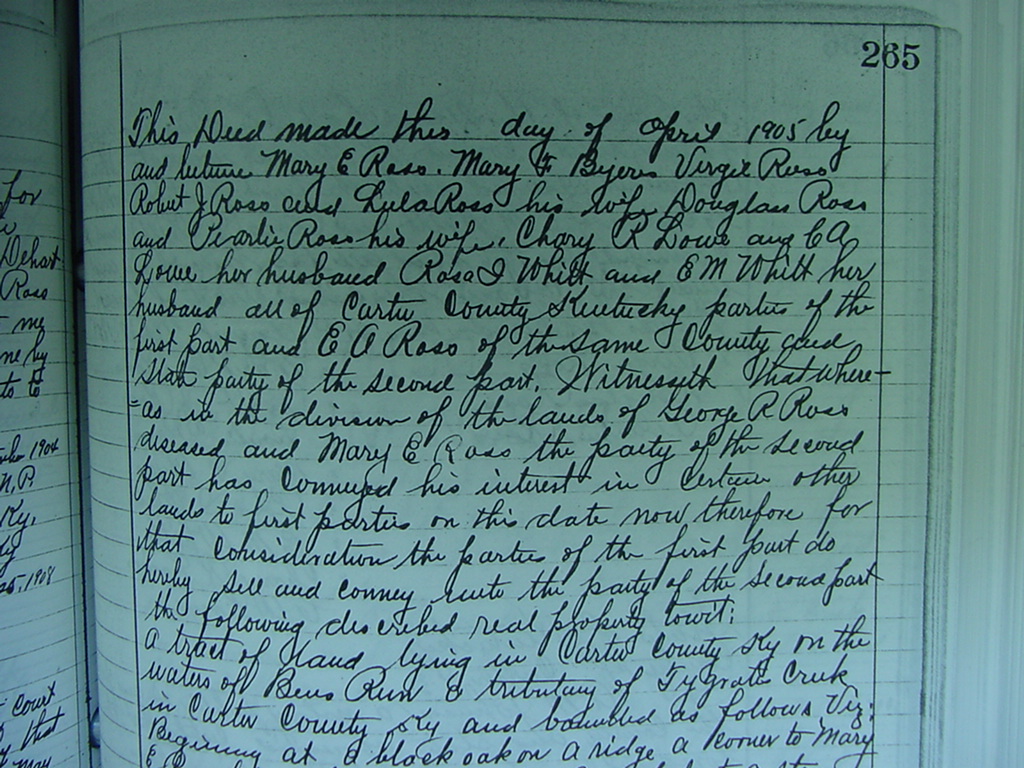 265
This Deed made this day of April 1905 by
and between Mary E Ross. Mary F Byers Virgil Ross
Robert J Ross and Lula Ross his wife, Douglass Ross
and Pearlie Ross his wife, Chary R Lowe and C A
Lowe her husband Rosa I Whitt and E M Whitt her
husband all of Carter County Kentucky parties of the
first part and E A Ross of the same County and
State party of the second part. Witnesseth That where-
=as in the division of the lands of George R Ross
diseased and Mary E Ross the party of the second
part has conveyed his interest in certain other
lands to first parties on this date now, therefore for
that consideration the parties of the first part do
hereby sell and convey unto the party of the second part
the following described real property towit:
A tract of land lying in Carter County Ky on the
waters of Bens Run a tributary of Tygrats Creek
in Carter County Ky and bounded as follows Viz:
Beginning at a black oak on a ridge a corner to Mary
for
Dehart
Ross
my
me by
to E
1904
N.P.
Ky.
25, 1908
Court
that
may